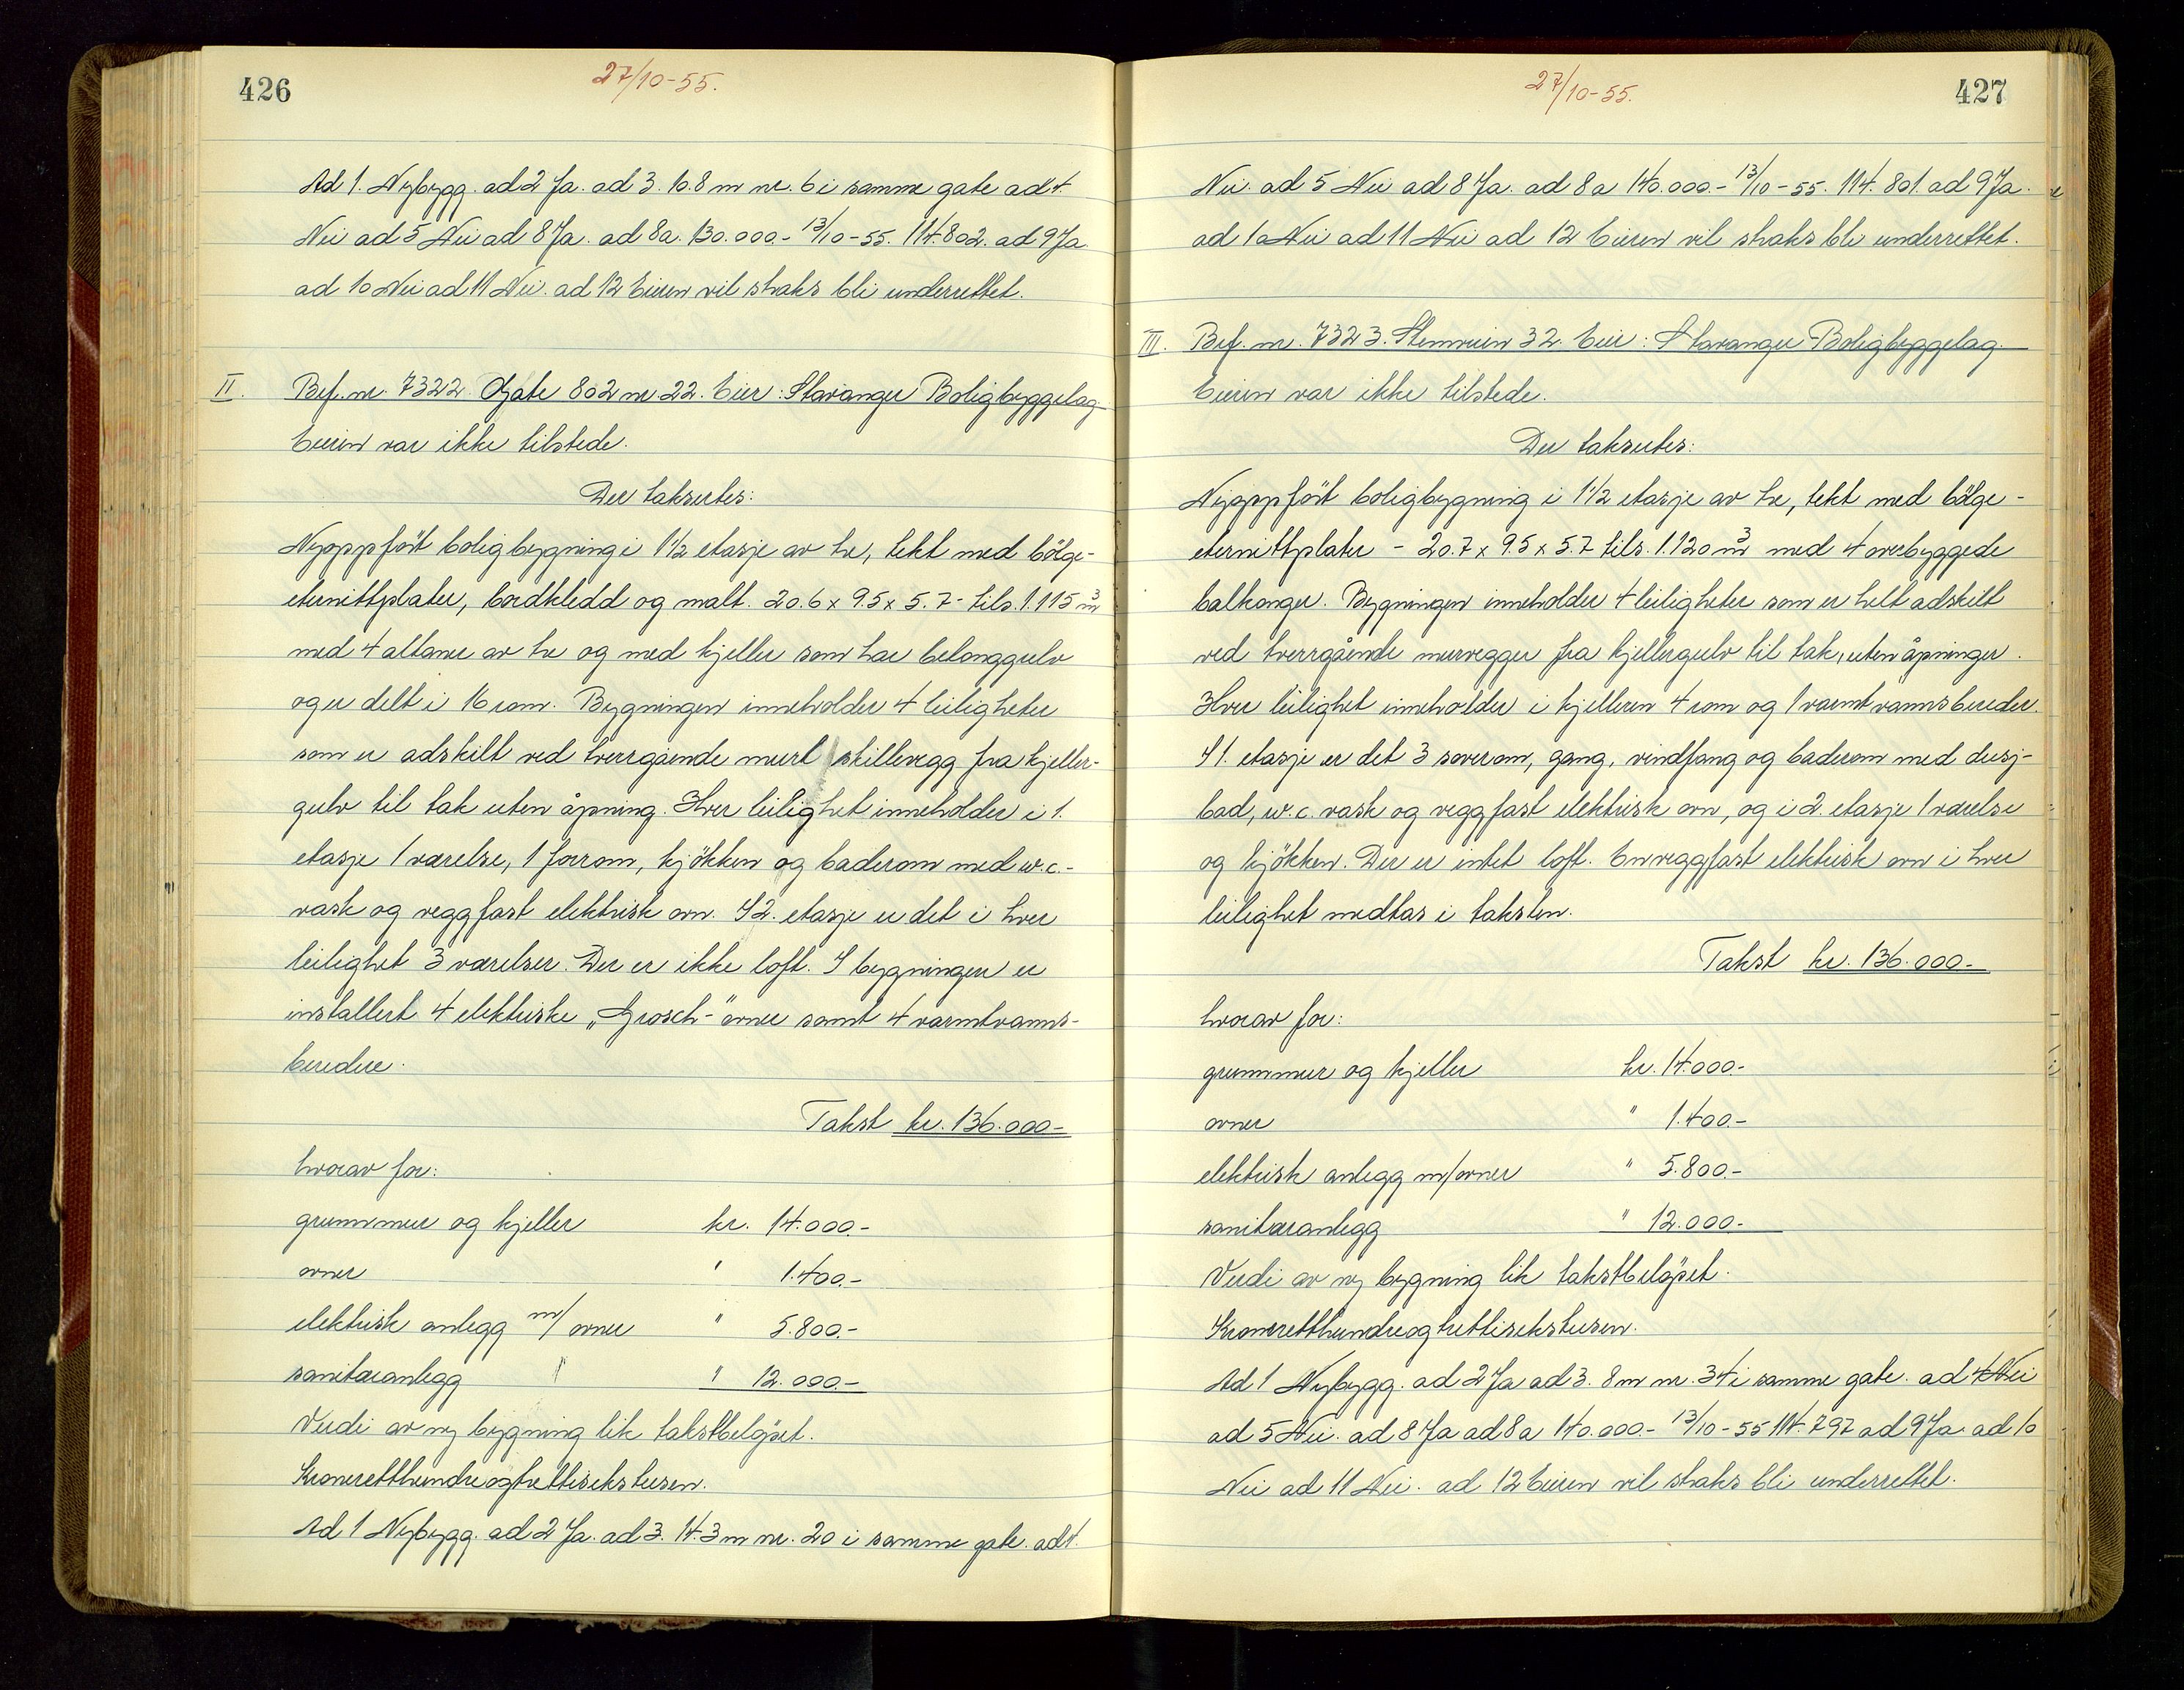 426
27/10-55.
Ad 1. Nybygg. ad 2 Ja. ad 3. 10.8 m nr. 6 i samme gate ad 4.
Nei ad 5 Nei ad 8 Ja. ad 8a. 130.000.- 13/10-55. 114.802. ad 9 Ja
ad 10 Nei ad 11 Nei. ad 12 Eieren vil straks bli underrettet.
II. Bef. nr. 7322. Gate 802 nr. 22. Eier: Stavanger Boligbyggelag
Eieren var ikke tilstede.
Der takseres:
Nyoppfört boligbygning i 1½ etasje av tre, tekt med bölge-
eternittplater, bordkledd og malt. 20.6 x 9.5 x 5.7 - tils. 1.115 m³
med 4 altaner av tre og med kjeller som har betonggulv
og er delt i 16 rom. Bygningen inneholder 4 leiligheter
som er adskilt ved tverrgående murt skillevegg fra kjeller-
gulv til tak uten åpning. Hver leilighet inneholder i 1.
etasje 1 værelse, 1 forrom, kjökken og baderom med w.c.-
vask og veggfast elektrisk ovn. I 2. etasje er det i hver
leilighet 3 værelser. Der er ikke loft. I bygningen er
installert 4 elektriske „Grosch-" ovner samt 4 varmtvanns-
beredere.
Takst kr. 136.000.-
hvorav for:
grunnmur og kjeller kr. 14.000.-
ovner " 1.400.-
elektrisk anlegg m/ ovner " 5.800.-
sanitæranlegg " 12.000.-
Verdi av ny bygning lik takstbelöpet.
Kroneretthundreogtrettisekstusen.
Ad 1 Nybygg. ad 2 Ja. ad 3. 14.3 m nr. 20 i samme gate. ad 4.
427
27/10-55.
Nei. ad 5 Nei ad 8 Ja. ad 8a 140.000.- 13/10-55. 114.801. ad 9 Ja.
ad 10 Nei ad 11 Nei ad 12 Eieren vil straks bli underrettet.
III. Bef. nr. 7323. Stemveien 32. Eier: Stavanger Boligbyggelag.
Eieren var ikke tilstede.
Der takseres:
Nyoppfört boligbygning i 1½ etasje av tre, tekt med bölge-
eternittplater - 20.7 x 9.5 x 5.7 tils. 1.120 m³ med 4 overbyggede
balkonger. Bygningen inneholder 4 leiligheter som er helt adskilt
ved tverrgående murvegger fra kjellergulv til tak, uten åpninger.
Hver leilighet inneholder i kjelleren 4 rom og 1 varmtvannsbereder.
I 1. etasje er det 3 soverom, gang, vindfang og baderom med dusj-
bad, w.c. vask og veggfast elektrisk ovn, og i 2. etasje 1 værelse
og kjökken. Der er intet loft. En veggfast elektrisk ovn i hver
leilighet medtas i taksten.
Takst kr. 136.000.-
hvorav for:
grunnmur og kjeller kr. 14.000.-
ovner " 1.400.-
elektrisk anlegg m/ovner " 5.800.-
sanitæranlegg " 12.000.-
Verdi av ny bygning lik takstbelöpet.
Kroneretthundreogtrettisekstusen.
Ad 1 Nybygg. ad 2 Ja ad 3. 8 m nr. 34 i samme gate. ad 4 Nei
ad 5 Nei. ad 8 Ja ad 8a 140.000.- 13/10-55 114.797 ad 9 Ja. ad 10
Nei ad 11 Nei. ad 12 Eieren vil straks bli underrettet.